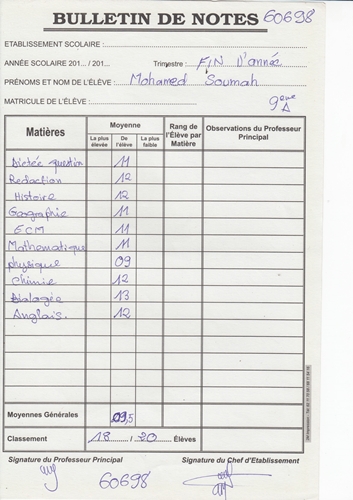 BULLETIN DE NOTES 60698
ETABLISSEMENT SCOLAIRE :
ANNÉE SCOLAIRE 201... / 201... Trimestre : FIN D'année
PRÉNOMS ET NOM DE L'ÉLÈVE : Mohamed Soumah
MATRICULE DE L'ÉLÈVE : 9ème A
Matières Moyenne Rang de l'Élève par Matière Observations du Professeur Principal
La plus élevée De l'élève La plus faible
Dictée question 11
Redaction 12
Histoire 12
Geographie 11
ECM 11
Mathematique 11
physique 09
chimie 12
Bialogée 13
Anglais. 12
Moyennes Générales 09,5
Classement 18 / 20 Élèves
Signature du Professeur Principal Signature du Chef d'Etablissement
60698